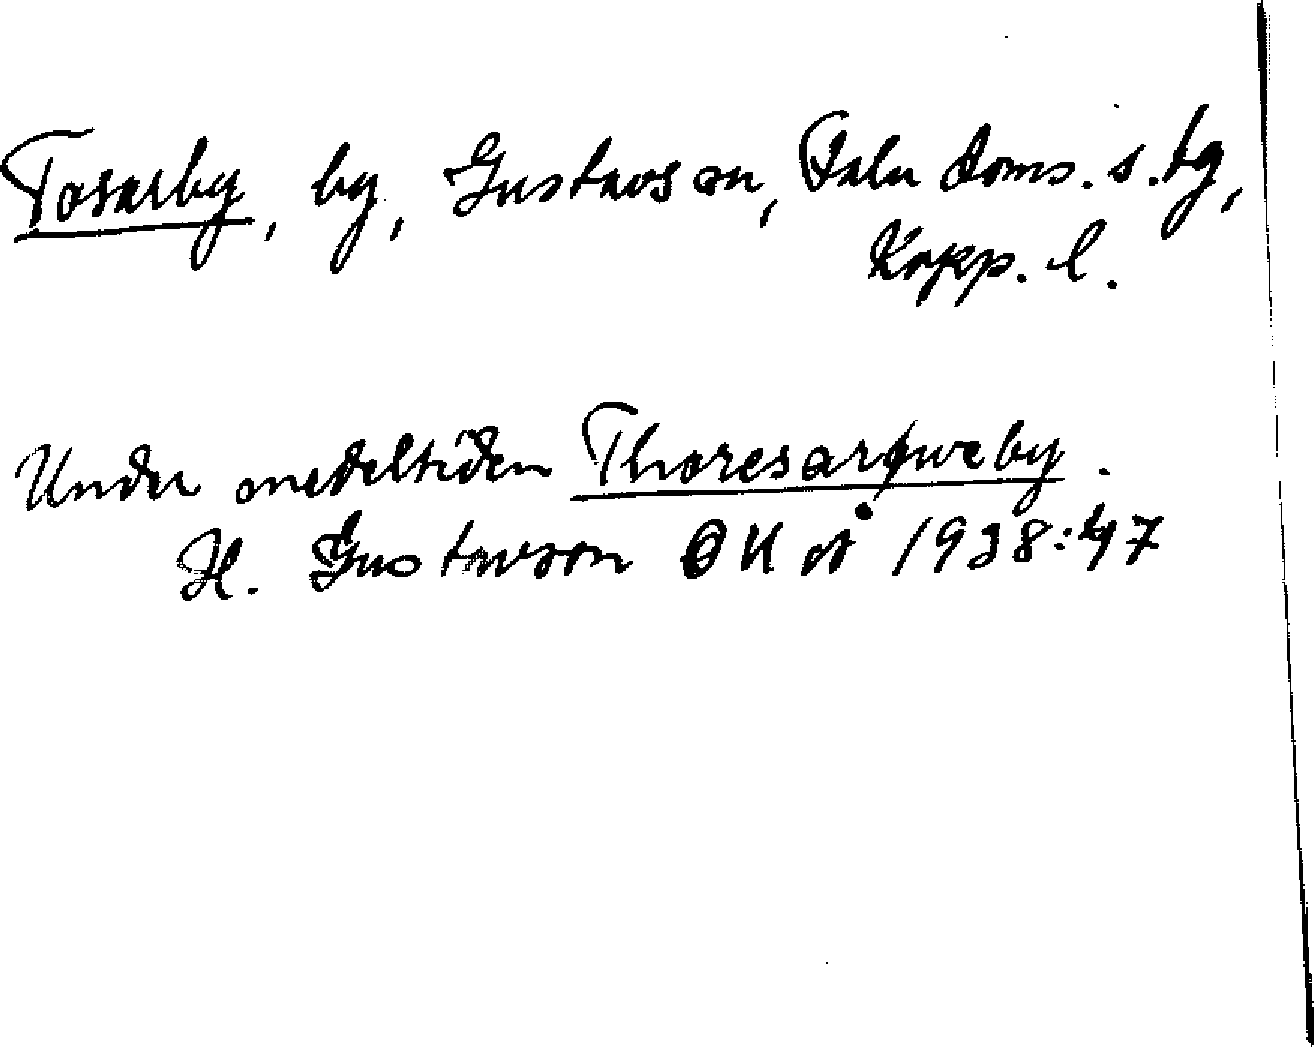 Tosarby, by, Gustavs sn, Falu doms. s. tg,
Kopp. l.
Under medeltiden Thoresarfweby.
H. Gustavson OUÅ 1938:47